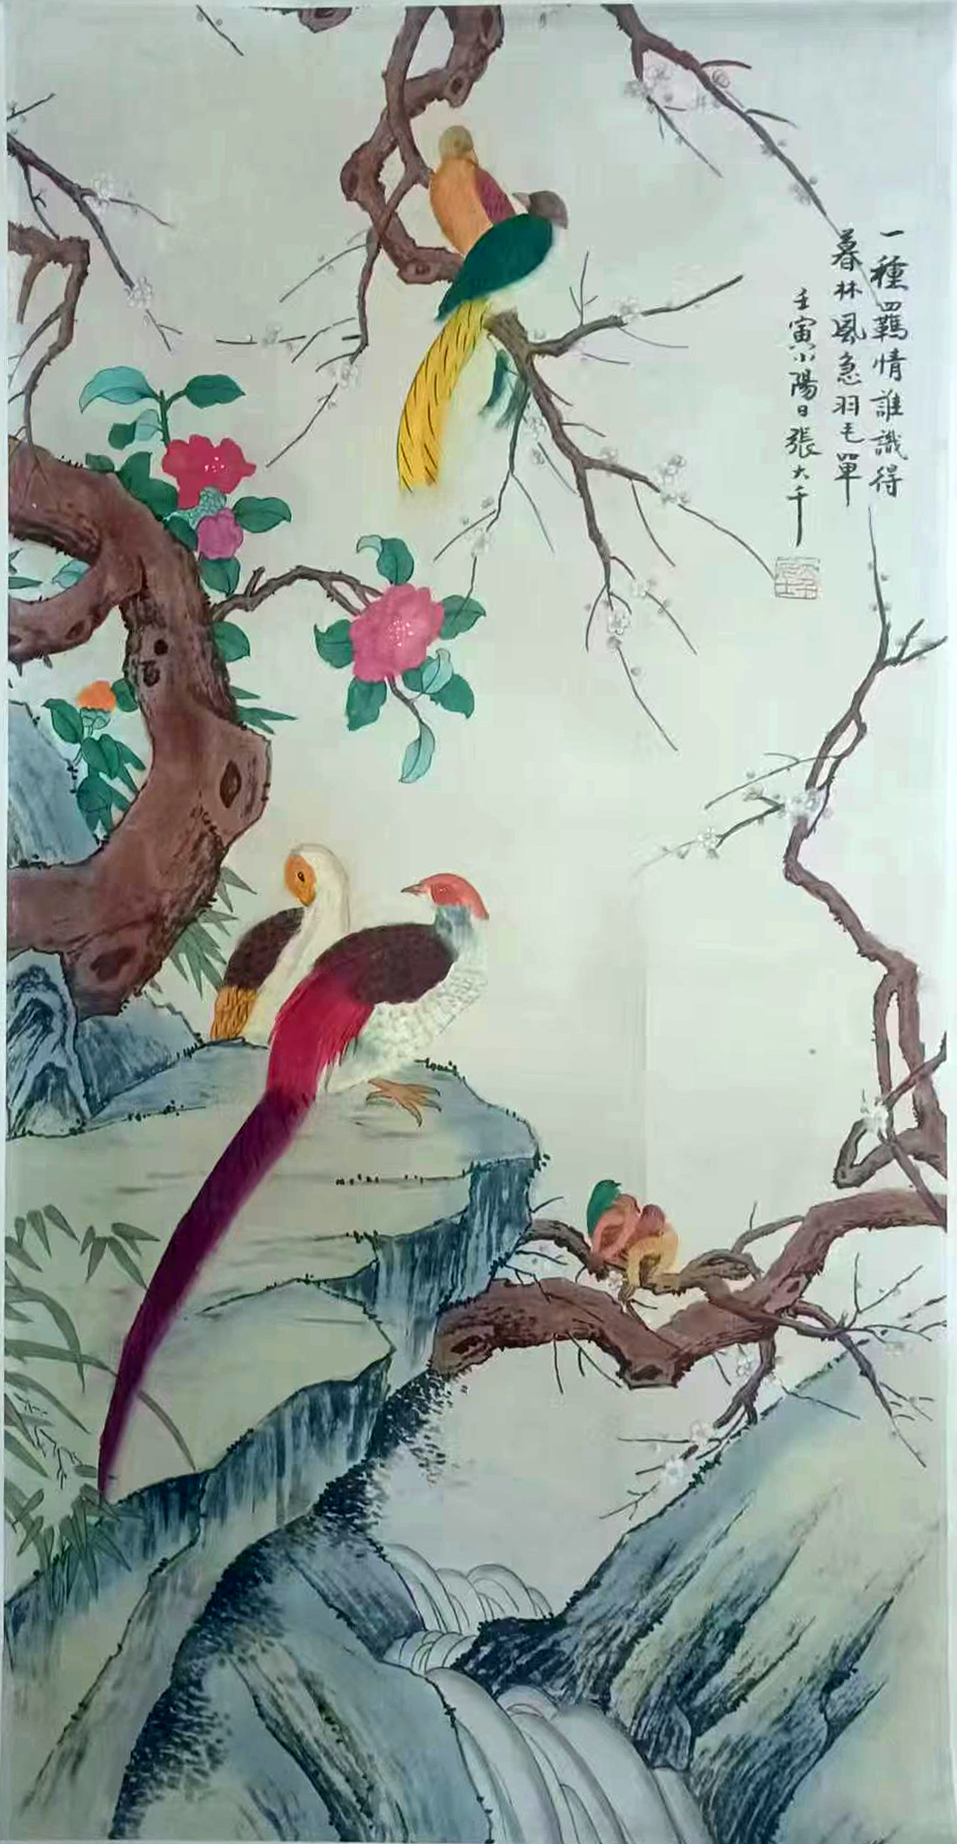 一種羈情誰識得
暮林風急羽毛單
壬寅小陽日張大千